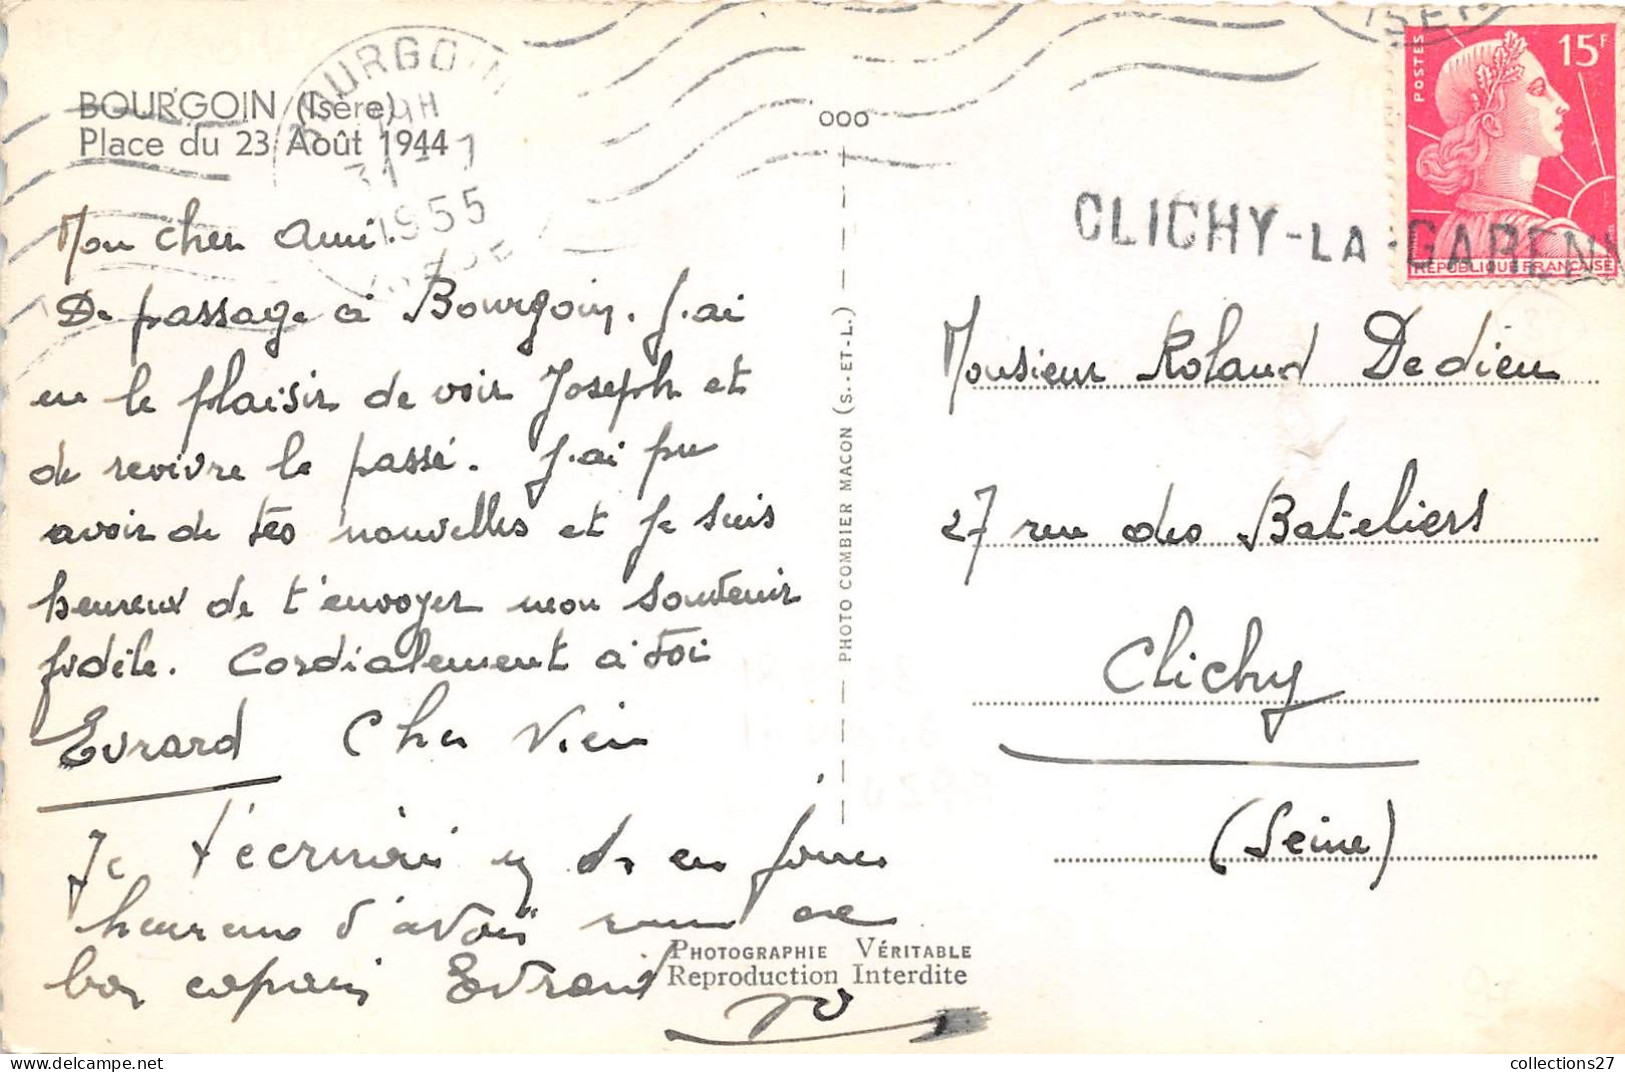 BOURGOIN (Isère)
Place du 23 Août 1944
BOURGOIN
31-7
1955
ISERE
000
POSTES
15F
RÉPUBLIQUE FRANÇAISE
CLICHY-LA-GARENN
Mon cher ami.
De passage à Bourgoin. J'ai
eu le plaisir de voir Joseph et
de revivre le passé. J'ai pu
avoir de tes nouvelles et je suis
heureux de t'envoyer mon souvenir
fidèle. Cordialement à toi
Evrard Cher Vieux
Je t'écrirai
heureux d'avoir
bon copain Evrard
PHOTO COMBIER MACON (S.-ET-L.)
Monsieur Roland Dedieu
27 rue des Bateliers
Clichy
(Seine)
PHOTOGRAPHIE VÉRITABLE
Reproduction Interdite
collections27